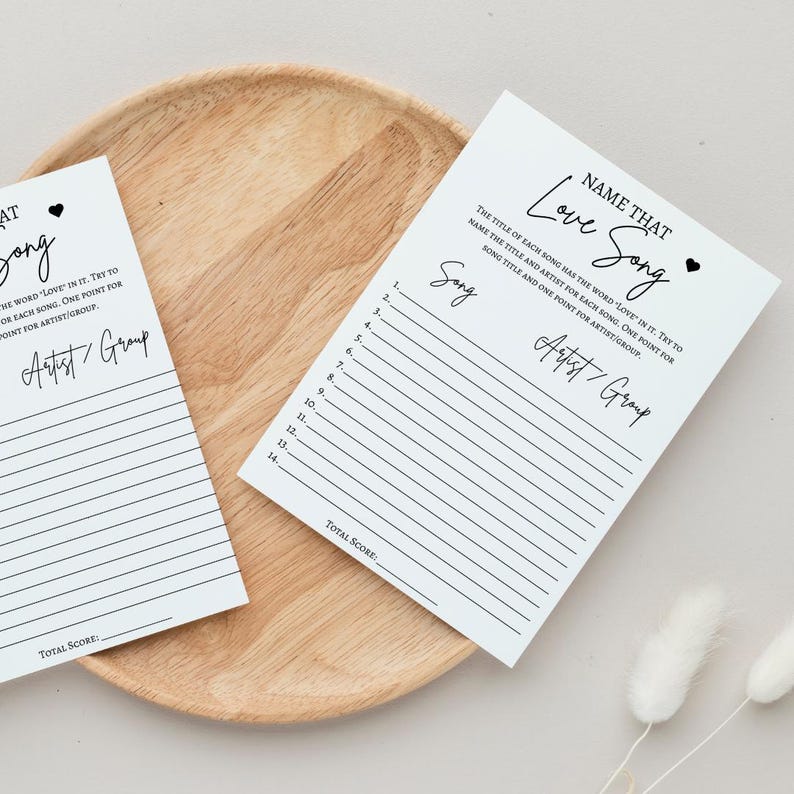 AT
Song
HE WORD "LOVE" IN IT. TRY TO
FOR EACH SONG. ONE POINT FOR
POINT FOR ARTIST/GROUP.
Artist / Group
TOTAL SCORE:
NAME THAT
Love Song
THE TITLE OF EACH SONG HAS THE WORD "LOVE" IN IT. TRY TO
NAME THE TITLE AND ARTIST FOR EACH SONG. ONE POINT FOR
SONG TITLE AND ONE POINT FOR ARTIST/GROUP.
Song
Artist / Group
1.
2.
3.
4.
5.
6.
7.
8.
9.
10.
11.
12.
13.
14.
TOTAL SCORE: